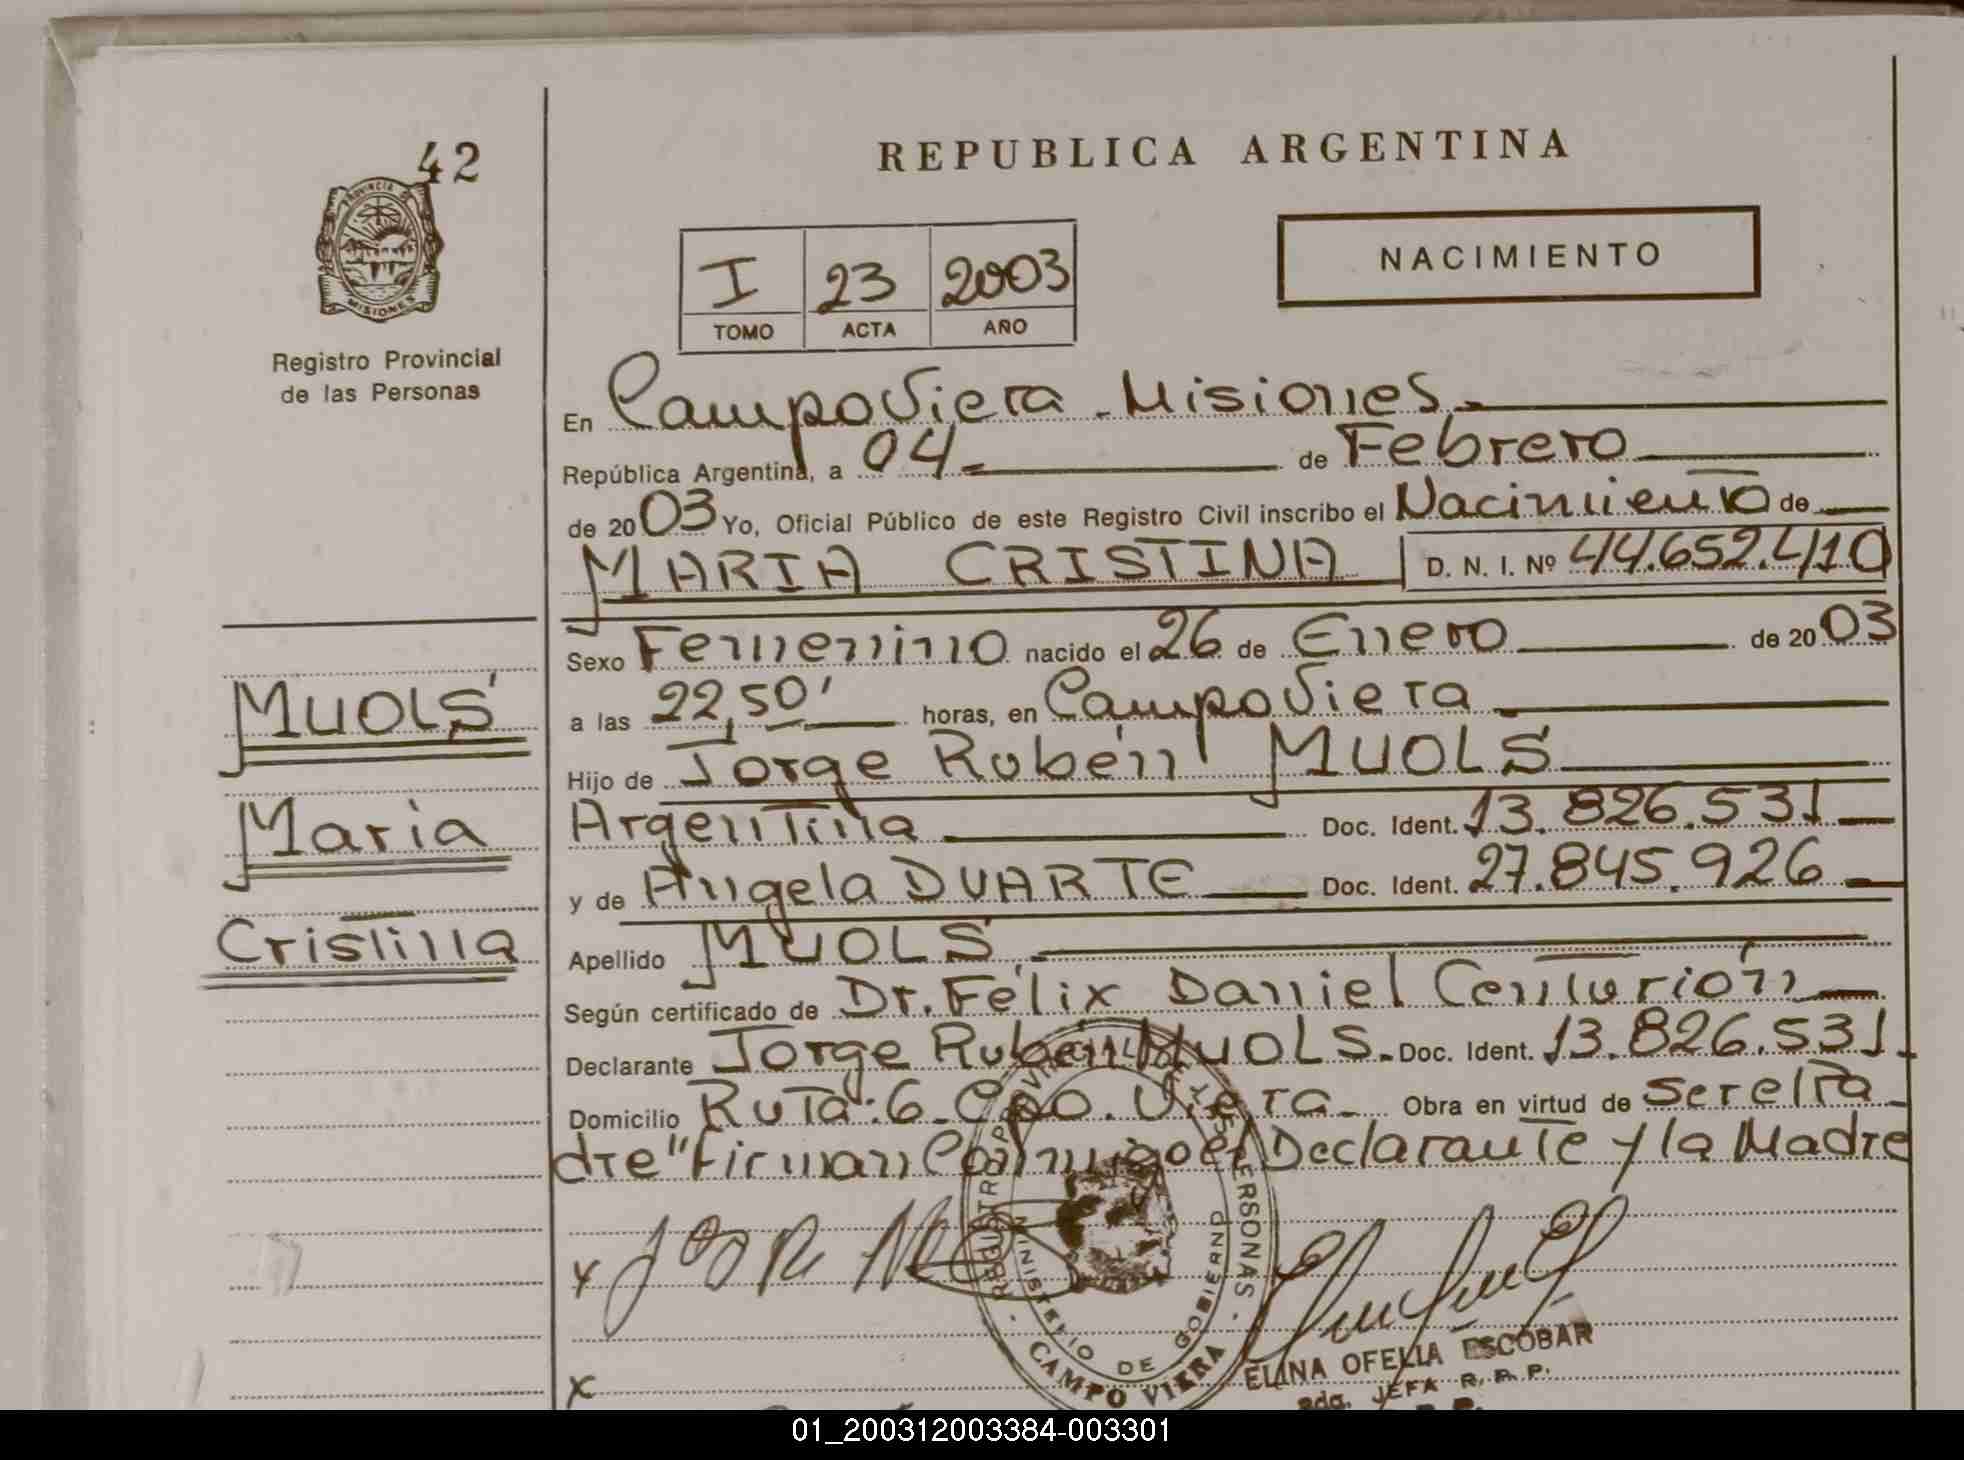 42
PROVINCIA DE
MISIONES
Registro Provincial
de las Personas
REPUBLICA ARGENTINA
I 23 2003
TOMO ACTA AÑO
NACIMIENTO
En Campo Viera - Misiones.-
República Argentina, a 04 de Febrero
de 2003 Yo, Oficial Público de este Registro Civil inscribo el Nacimiento de
MARIA CRISTINA D. N. I. Nº 44.652.410
Sexo Femenino nacido el 26 de Enero de 2003
a las 22,50' horas, en Campo Viera
Hijo de Jorge Rubén MUOLS
Argentina Doc. Ident. 13.826.531
y de Angela DUARTE Doc. Ident. 27.845.926
Apellido MUOLS
Según certificado de Dr. Félix Daniel Centurión
Declarante Jorge Rubén MUOLS. Doc. Ident. 13.826.531
Domicilio Ruta: 6 - Cpo. Viera - Obra en virtud de ser el Pa
dre" Firman Conmigo el Declarante y la Madre
MUOLS
Maria
Cristina
x
x
REGISTRO PROVINCIAL DE LAS PERSONAS
MINISTERIO DE GOBIERNO
CAMPO VIERA
ELINA OFELIA ESCOBAR
JEFA R. P. P.
01_200312003384-003301